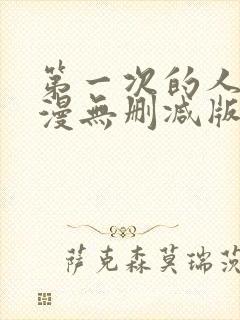 第一次的人
漫無删减版
萨克森莫瑞茨